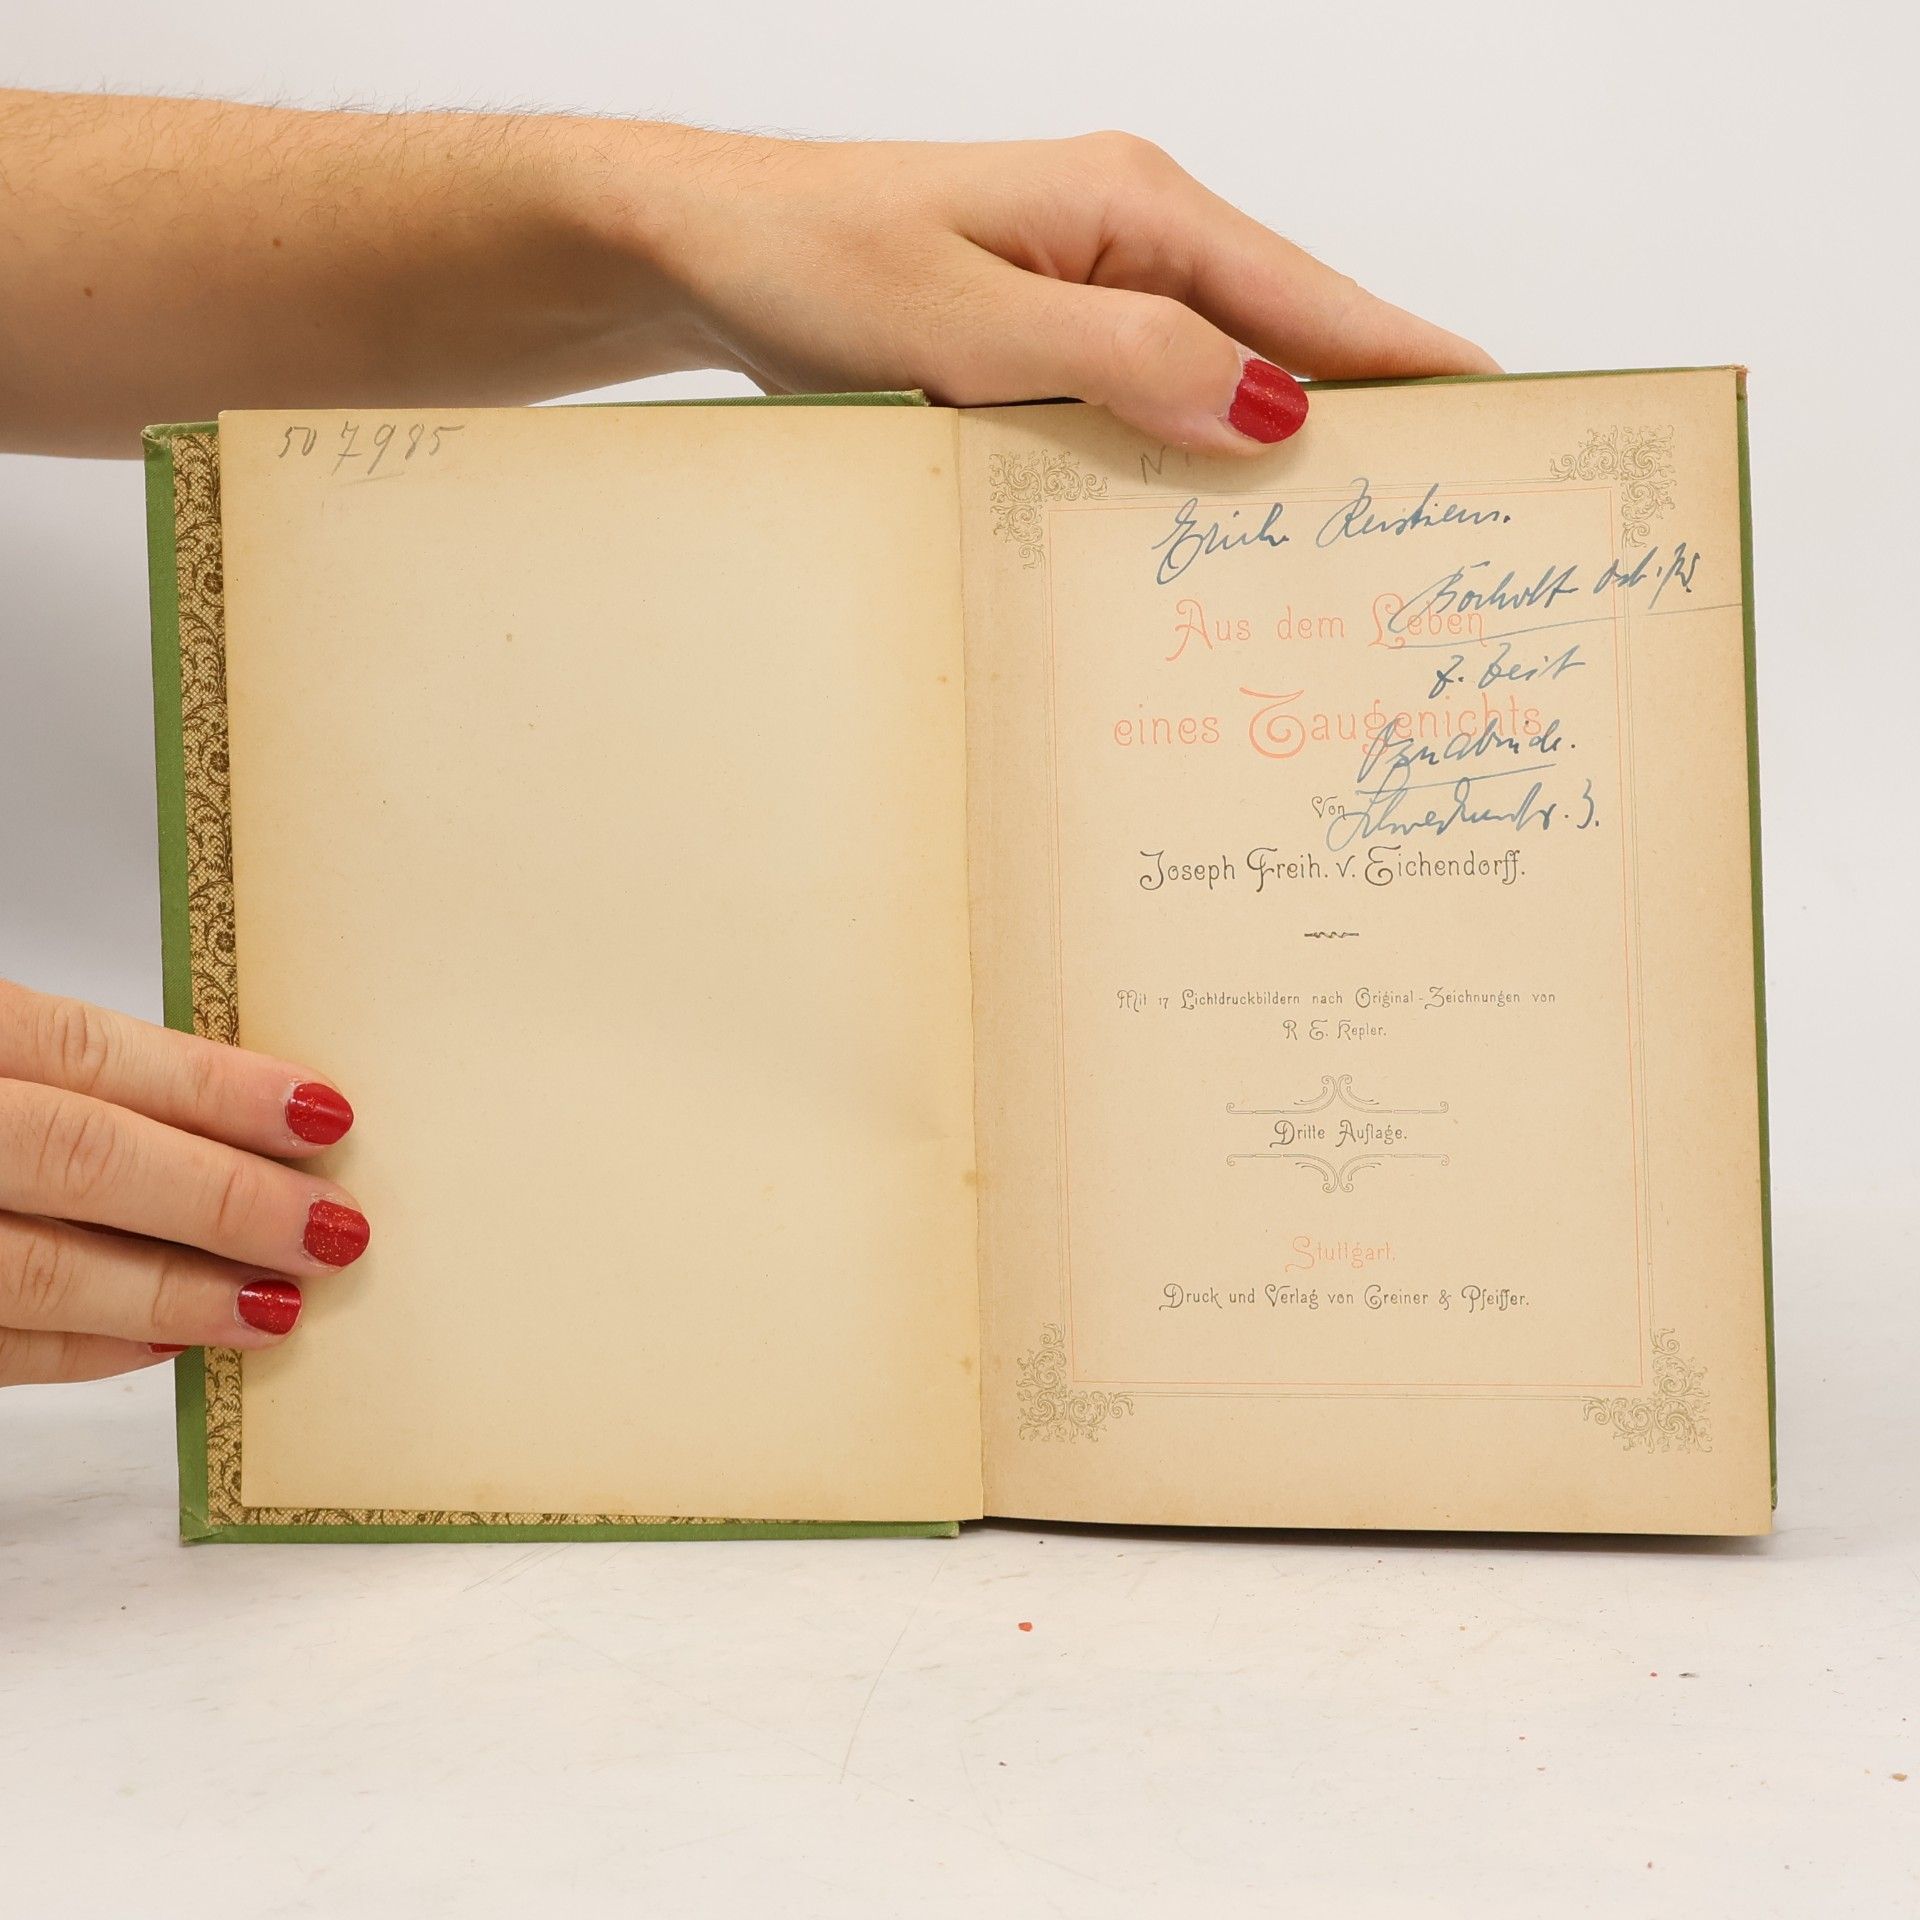 50 7985
N
Erich
Bocholt
Aus dem Leben
z. Zeit
eines Taugenichts
Osnabrück.
Von
3.
Joseph Freih. v. Eichendorff.
Mit 17 Lichtdruckbildern nach Original-Zeichnungen von
R. E. Kepler.
Dritte Auflage.
Stuttgart.
Druck und Verlag von Greiner & Pfeiffer.